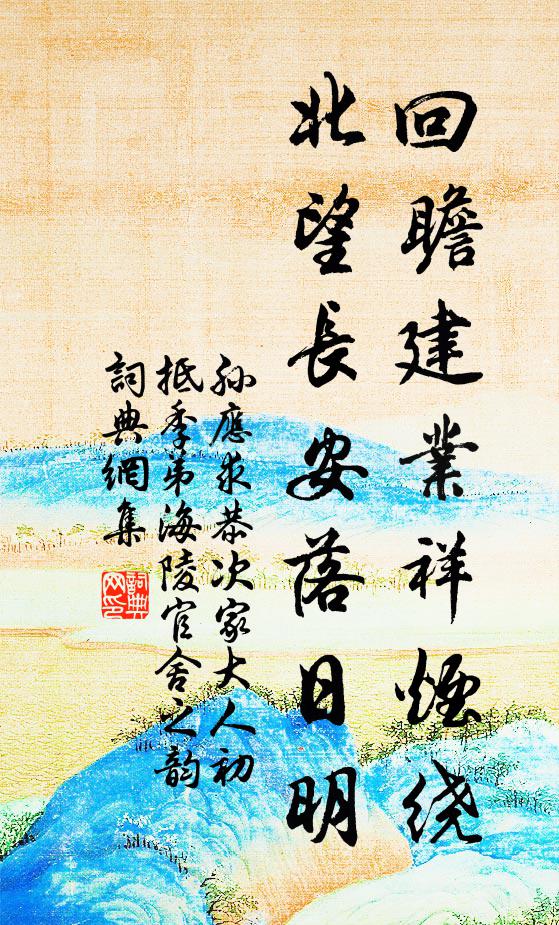 回瞻建業祥煙绕
北望長安落日明
孙應求恭次家大人初
抵季弟海陵官舍之韵
詞典網集
詞典
网印